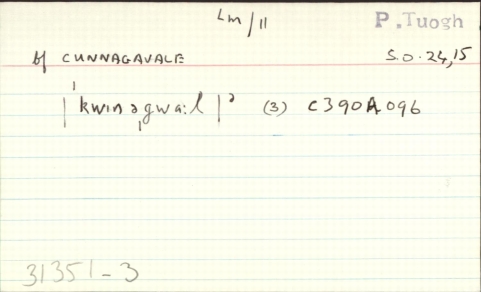 Lm/11 P. Tuogh
bf CUNNAGAVALE S.O. 24,15
|ˈkwinəˌgwa:l|² (3) C390A096
31351-3